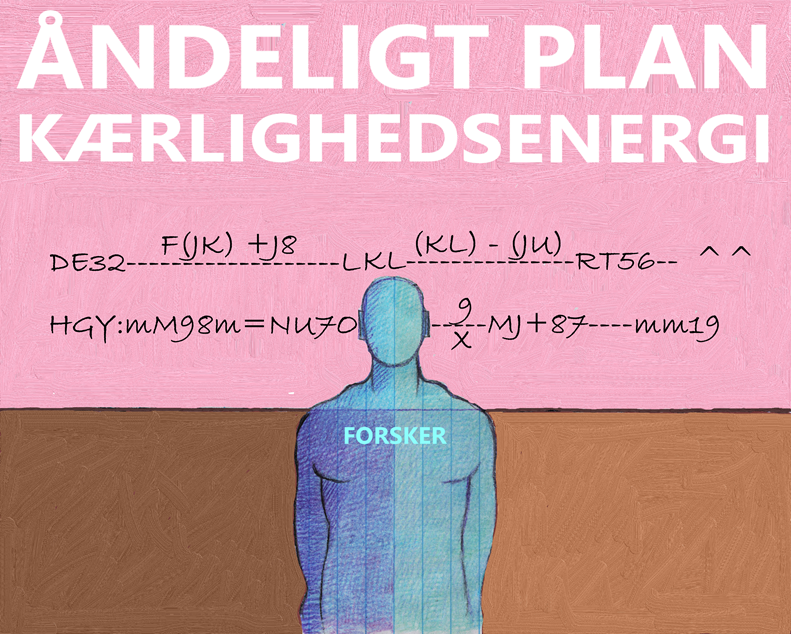 ÅNDELIGT PLAN
KÆRLIGHEDSENERGI
F(JK) +J8 (KL) - (JU)
DE32-------------------LKL---------------RT56-- ^ ^
9
HGY:mM98m=NU70 -----MJ+87----mm19
X
FORSKER